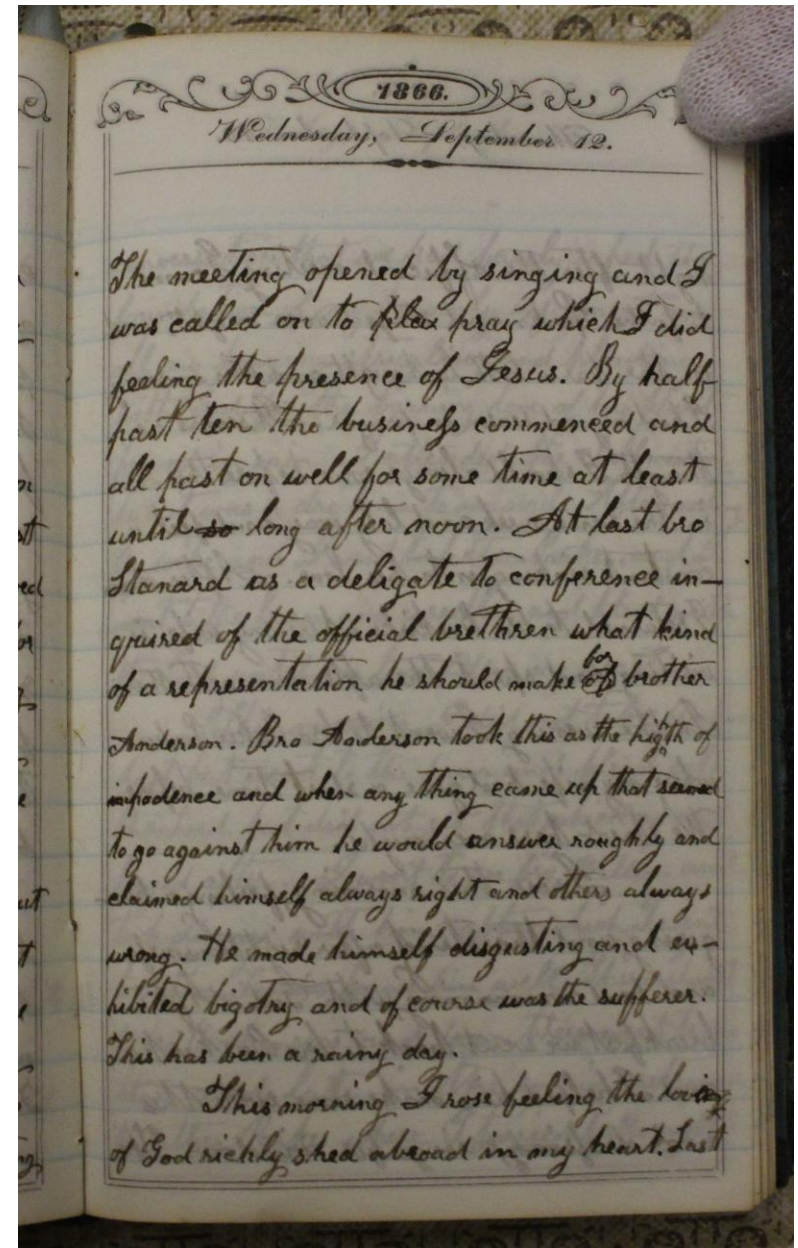 1866.
Wednesday, September 12.
The meeting opened by singing and I
was called on to plea pray which I did
feeling the presence of Jesus. By half
past ten the business commenced and
all past on well for some time at least
until so long after noon. At last bro
Stanard as a deligate to conference in-
quired of the official brethren what kind
of a representation he should make for brother
Anderson. Bro Anderson took this as the highth of
impodence and when any thing came up that seemed
to go against him he would answer roughly and
claimed himself always right and others always
wrong. He made himself disgusting and ex-
hibited bigotry and of course was the sufferer.
This has been a rainy day.
This morning I rose feeling the
of God richly shed abroad in my heart. Last